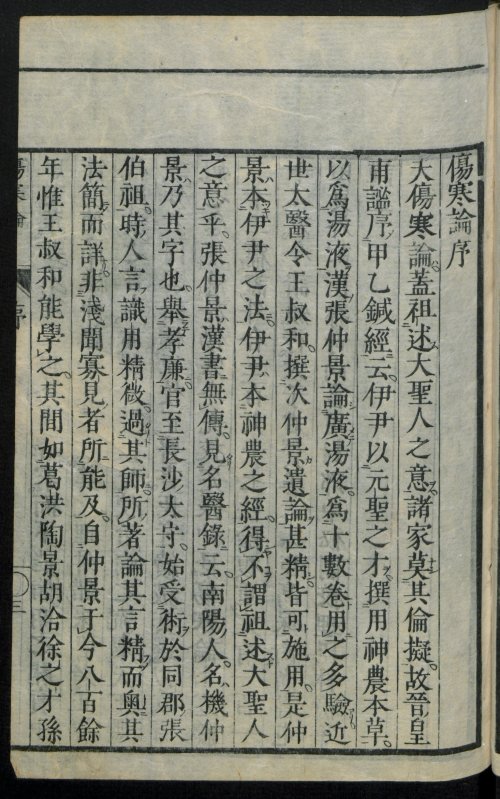 傷寒論序
夫傷寒論。蓋祖述大聖人之意。諸家莫其倫擬。故晉皇
甫謐序甲乙鍼經云。伊尹以元聖之才。撰用神農本草。
以爲湯液。漢張仲景論廣湯液。爲十數卷。用之多驗。近
世太醫令王叔和。撰次仲景遺論甚精。皆可施用。是仲
景本伊尹之法。伊尹本神農之經。得不謂祖述大聖人
之意乎。張仲景漢書無傳。見名醫錄云。南陽人。名機。仲
景乃其字也。舉孝廉。官至長沙太守。始受術於同郡張
伯祖。時人言。識用精微。過其師。所著論。其言精而奧。其
法簡而詳。非淺聞寡見者所能及。自仲景于今八百餘
年。惟王叔和能學之。其間如葛洪陶景胡洽徐之才孫
傷寒論
序
三